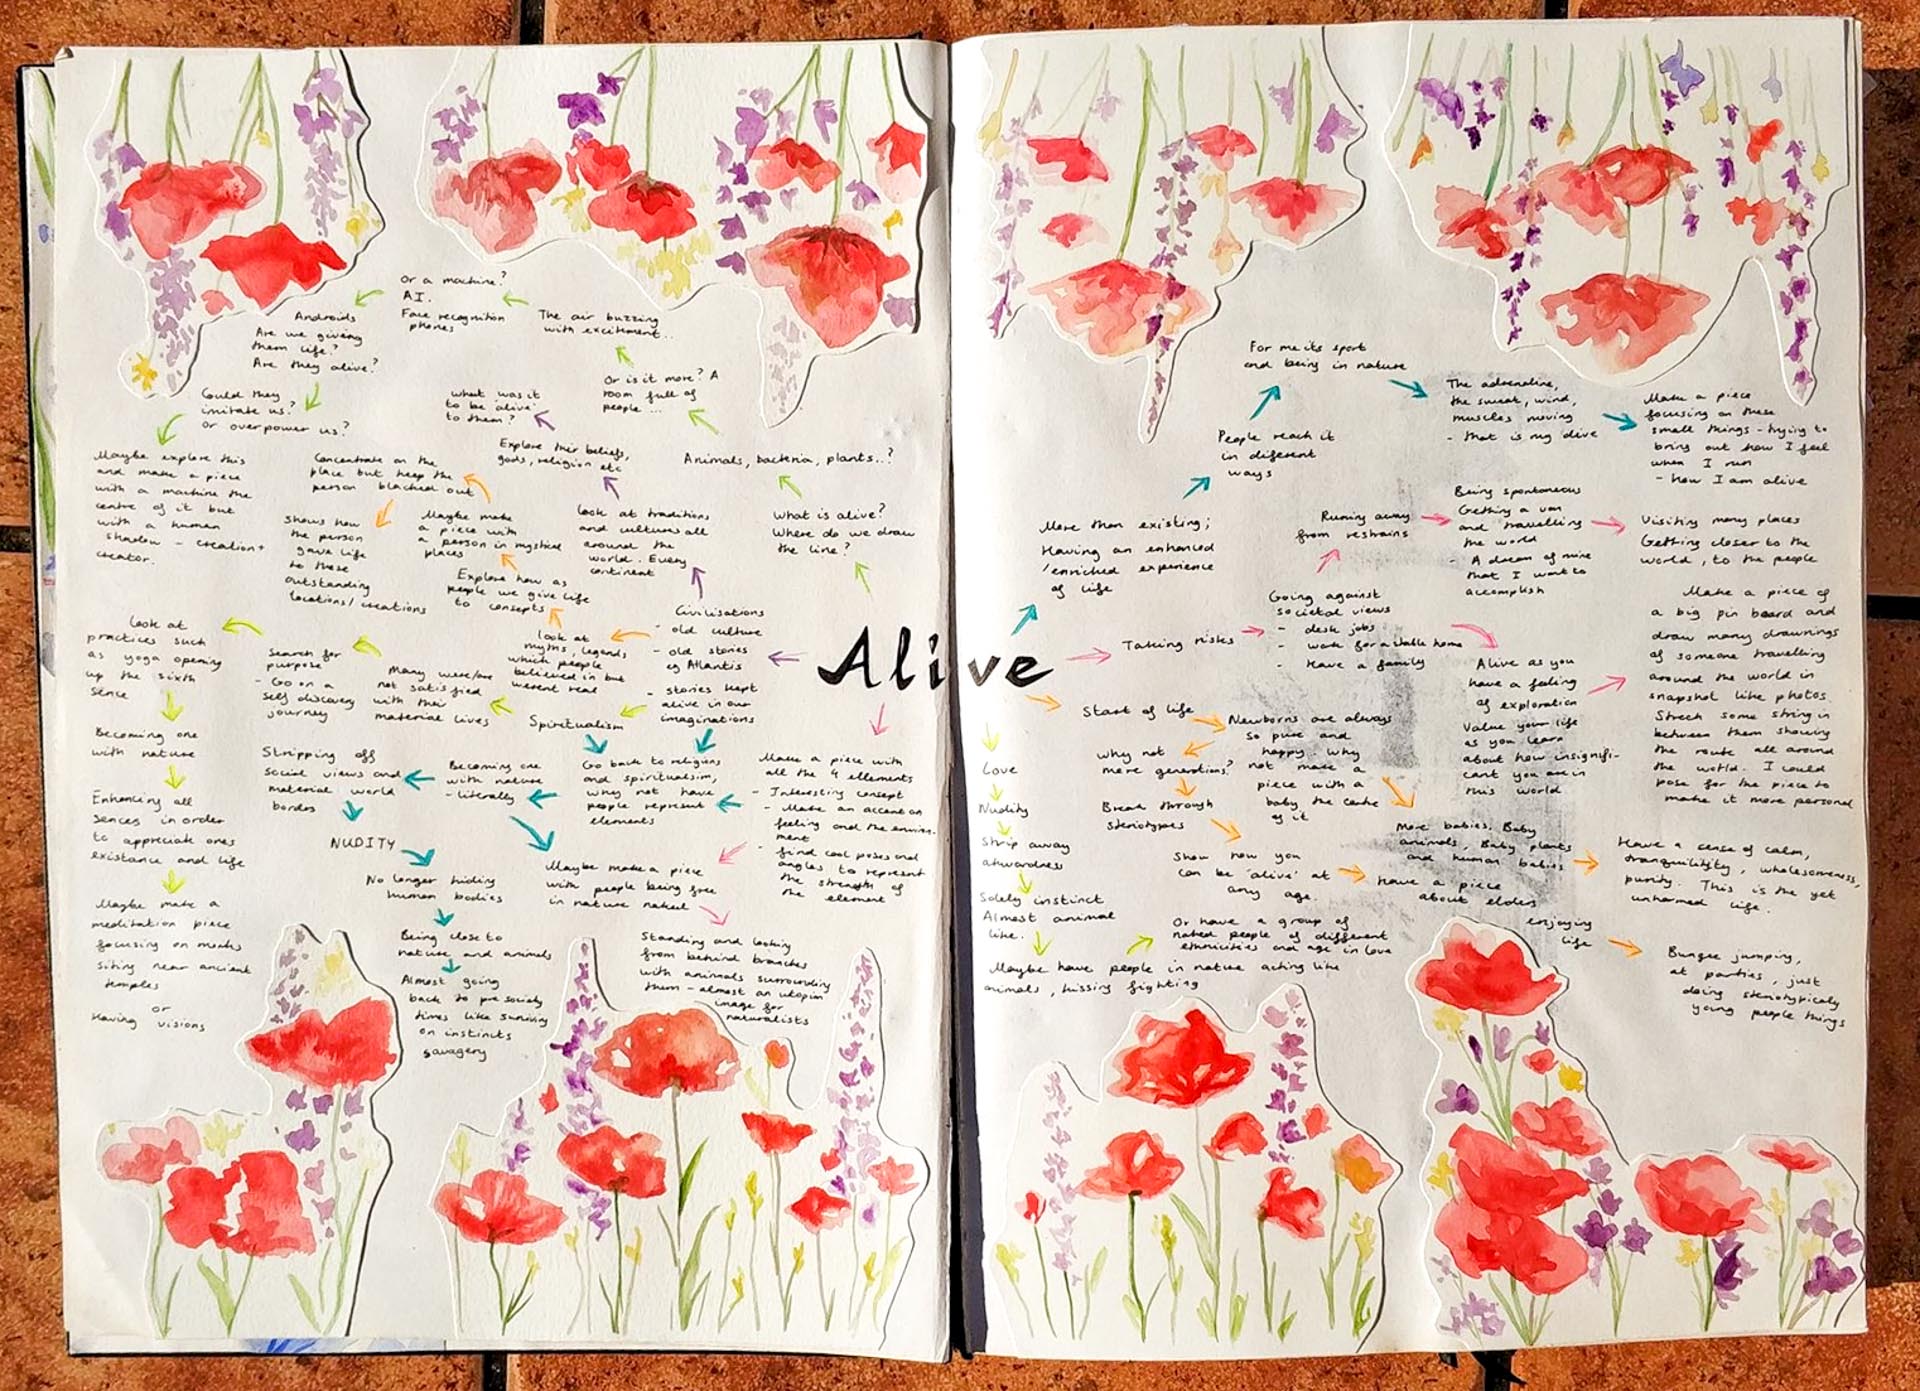 Or a machine?
AI.
Face recognition
phones
The air buzzing
with excitment..
Androids
Are we giveing
them life?
Are they alive?
Or is it more? A
room full of
people...
Could they
imitate us?
or overpower us?
what was it
to be 'alive'
to them?
Explore their beliefs,
gods, religion etc
Animals, bacteria, plants..?
Maybe explore this
and make a piece
with a machine the
centre of it but
with a human
shadow - creation +
creator.
Concentrate on the
place but keep the
person blacked out
Shows how
the person
gave life
to these
outstanding
locations/creations
Maybe make
a piece with
a person in mystical
places
Explore how as
people we give life
to concepts
Look at traditions
and cultures all
around the
world. Every
continent
What is alive?
Where do we draw
the line?
Civilisations
- old culture
- old stories
eg Atlantis
- stories kept
alive in our
imaginations
Look at
myths, legends,
which people
believed in but
werent real
Look at
practices such
as yoga opening
up the sixth
sense
Search for
purpose
- Go on a
self discovery
journey
Many were/are
not satisfied
with their
material lives
Spiritualism
Becoming one
with nature
Enhancing all
sences in order
to appreciate ones
existance and life
Maybe make a
meditation piece
focusing on monks
siting near ancient
temples
or
Having visions
Stripping off
social views and
material world
borders
Becoming one
with nature
- literally
Go back to religions
and spiritualsim,
why not have
people represent
elements
Make a piece with
all the 4 ellements
- Interesting concept
- Make an accent on
feeling and the environ-
ment
- find cool poses and
angles to represent
the strength of
the element
NUDITY
No longer hiding
human bodies
Maybe make a piece
with people being free
in nature naked
Being close to
nature and animals
Almost going
back to pre society
times like surviving
on instincts
savagery
Standing and looking
from behind branches
with animals surrounding
them - almost an utopian
image for
naturalists
Alive
For me its sport
and being in nature
The adrenaline,
the sweat, wind,
muscles moving
- that is my alive
Make a piece
focusing on these
small things - trying to
bring out how I feel
when I run
- how I am alive
People reach it
in different
ways
More than existing;
Having an enhanced
/enriched experience
of life
Running away
from restrains
Being spontaneous
Getting a van
and travelling
the world
- A dream of mine
that I want to
accomplish
Visiting many places
Getting closer to the
world, to the people
Taking risks
Going against
societal views
- desk jobs
- work for a stable home
- Have a family
Alive as you
have a feeling
of exploration
Value your life
as you learn
about how insignifi-
cant you are in
this world
Make a piece of
a big pin board and
draw many drawnings
of someone travelling
around the world in
snapshot like photos.
Strech some string in
between them showing
the route all around
the world. I could
pose for the piece to
make it more personal
Start of life
Newborns are always
so pure and
happy why
not make a
piece with a
baby the centre
of it
Why not
more generations?
Break through
steriotypes
Show how you
can be 'alive' at
any age.
More babies. Baby
animals, Baby plants
and human babies
Have a sense of calm,
tranquilitity, wholesomeness,
purity. This is the yet
unharmed life.
Have a piece
about elders
enjoying
life
Bungee jumping,
at parties, just
doing steriotypicaly
young people things
Love
Nudity
Strip away
akwardness
Solely instinct
Almost animal
like.
Maybe have people in nature acting like
animals, kissing fighting
Or have a group of
naked people of different
ethnicities and age in love